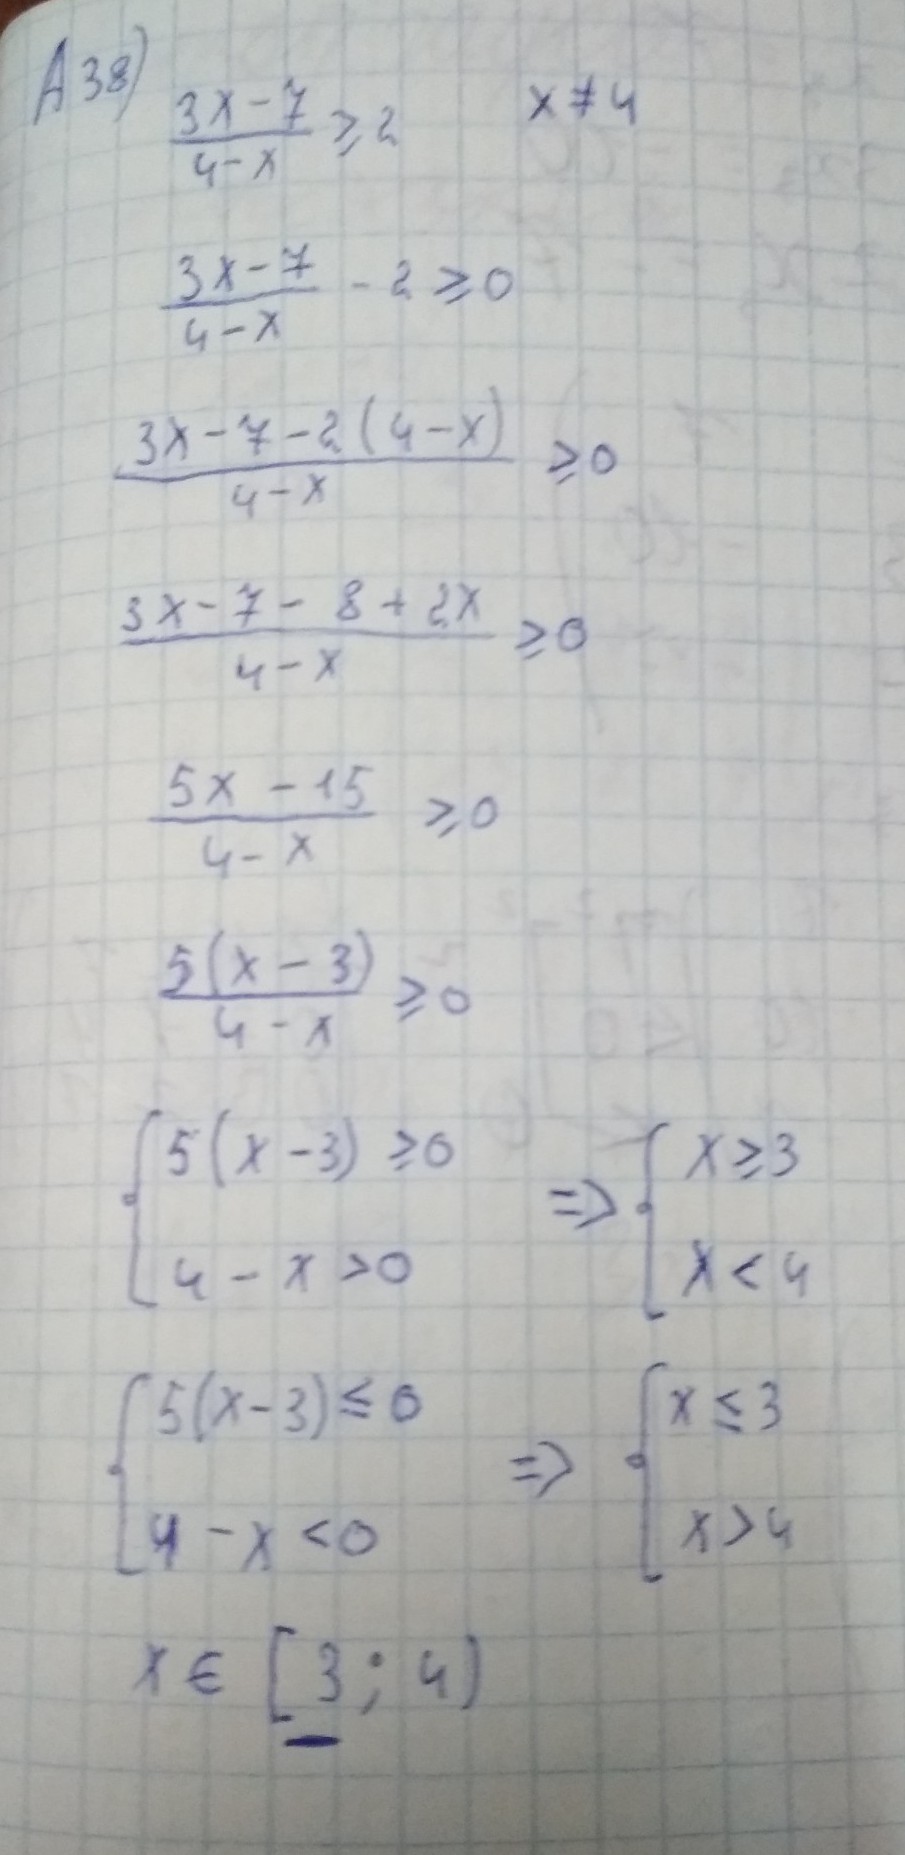 A38)
(3x-7)/(4-x) ≥ 2    x ≠ 4
(3x-7)/(4-x) - 2 ≥ 0
(3x-7-2(4-x))/(4-x) ≥ 0
(3x-7-8+2x)/(4-x) ≥ 0
(5x-15)/(4-x) ≥ 0
5(x-3)/(4-x) ≥ 0
{ 5(x-3) ≥ 0 ⇒ { x ≥ 3
4-x > 0    x < 4
{ 5(x-3) ≤ 0 ⇒ { x ≤ 3
4-x < 0    x > 4
x ∈ [3; 4)